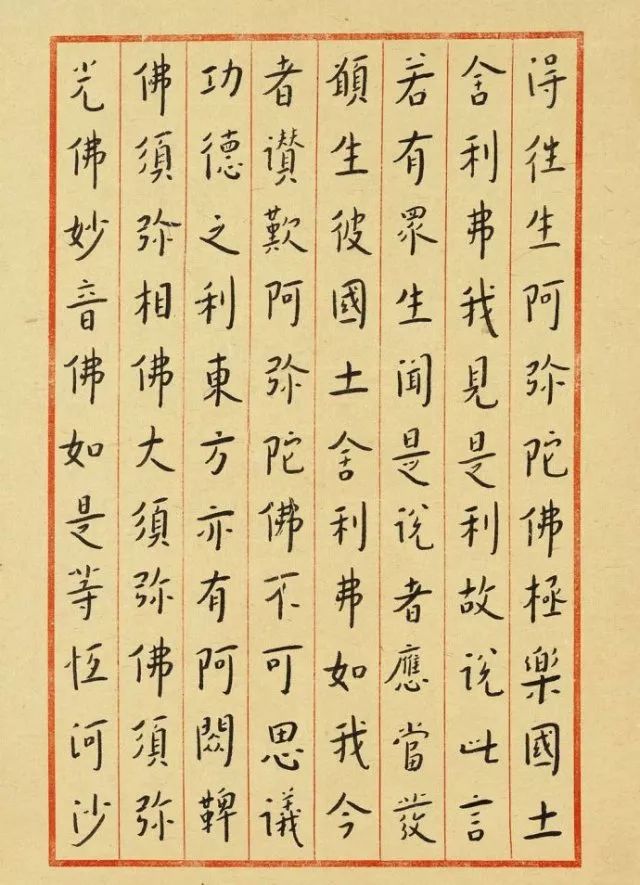 得往生阿弥陀佛極樂國土
舍利弗我見是利故説此言
若有眾生聞是説者應當發
願生彼國土舍利弗如我今
者讃歎阿弥陀佛不可思議
功德之利東方亦有阿閦鞞
佛須弥相佛大須弥佛須弥
光佛妙音佛如是等恆河沙